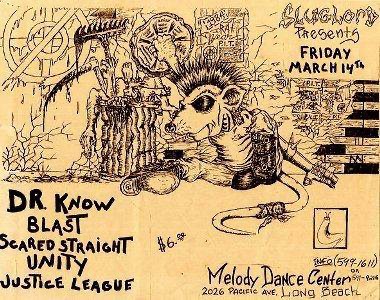 SLUGLORD
PRESENTS
FRIDAY
MARCH 14th
DR. KNOW
BLAST
SCARED STRAIGHT
UNITY
JUSTICE LEAGUE
$6.00
INFO (599-1611)
OR
Melody Dance Center
2026 PACIFIC AVE, Long Beach